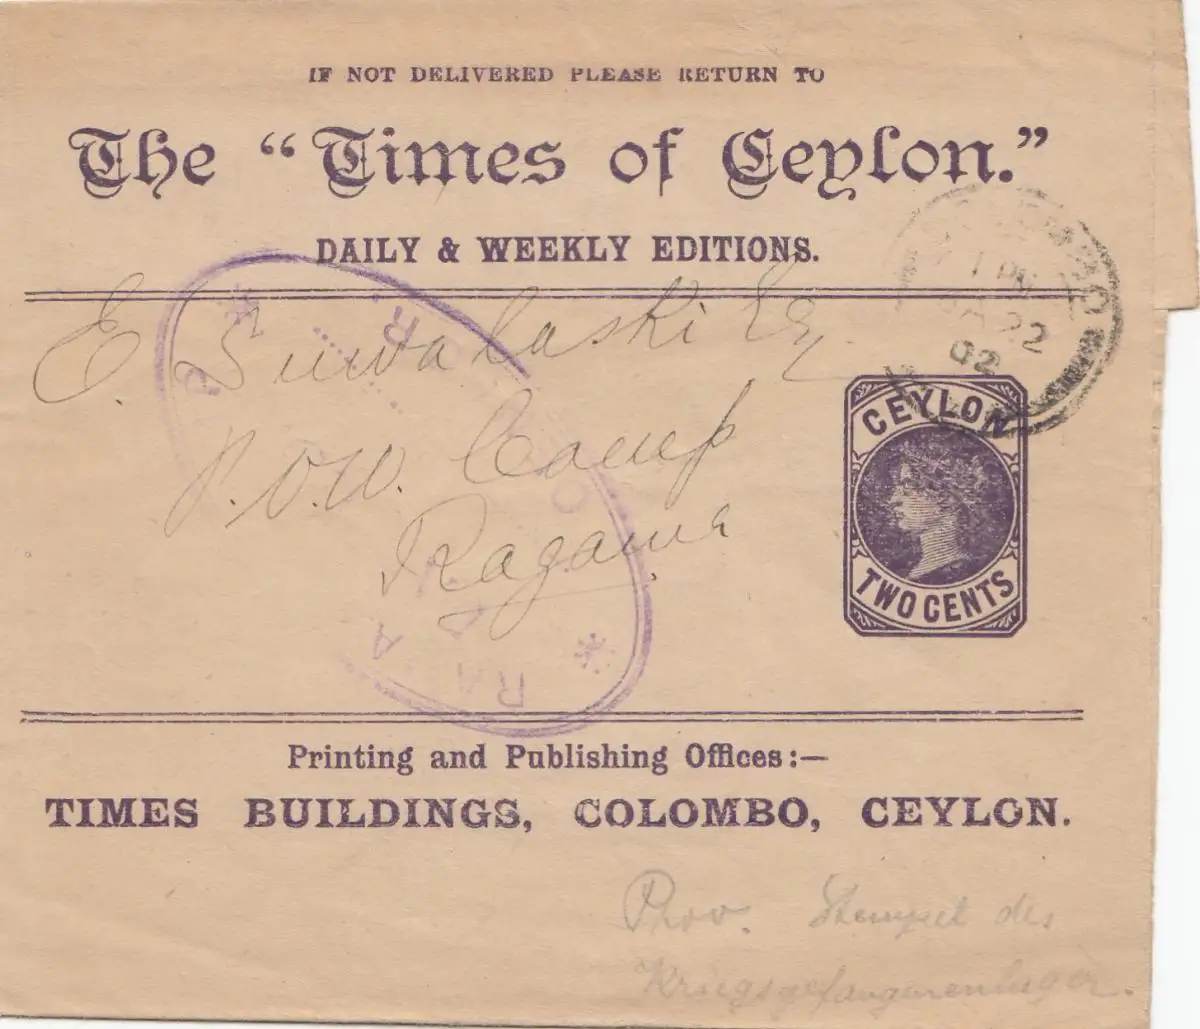 IF NOT DELIVERED PLEASE RETURN TO
The "Times of Ceylon."
DAILY & WEEKLY EDITIONS.
02
E. Suwalaski Esq
P.O.W. Camp
Ragama
CEYLON
TWO CENTS
Printing and Publishing Offices:—
TIMES BUILDINGS, COLOMBO, CEYLON.
Prov. Stempel des
Kriegsgefangenenlager.